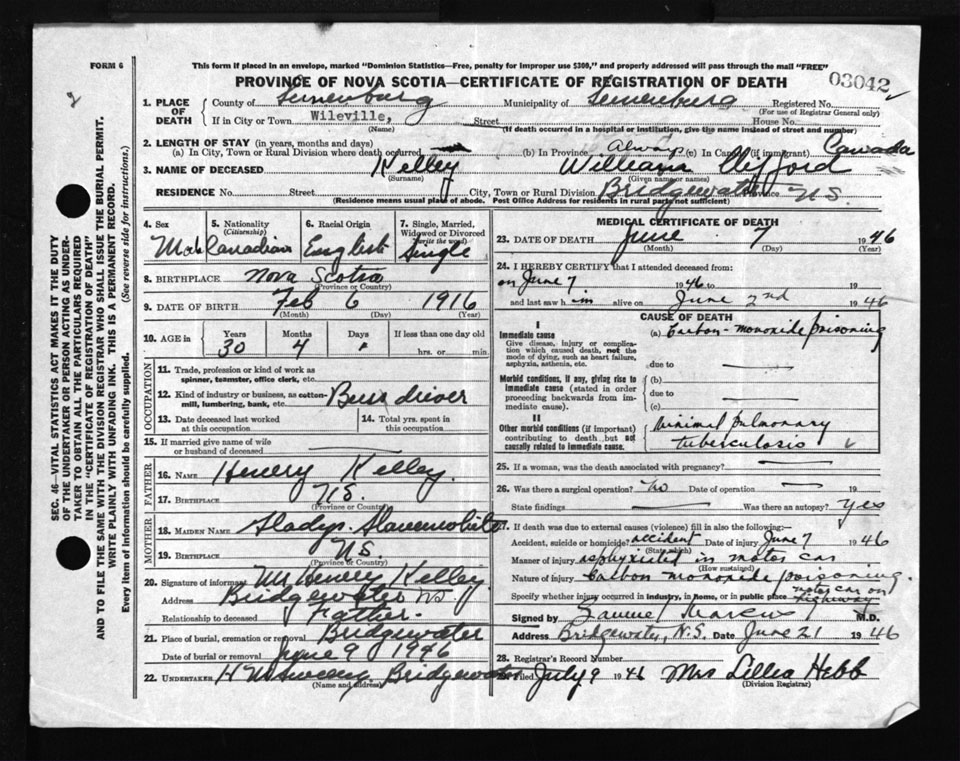 FORM 6
This form if placed in an envelope, marked "Dominion Statistics—Free, penalty for improper use $300," and properly addressed will pass through the mail "FREE"
PROVINCE OF NOVA SCOTIA—CERTIFICATE OF REGISTRATION OF DEATH
03042
1. PLACE OF DEATH
County of Lunenburg Municipality of Lunenburg Registered No.
(For use of Registrar General only)
If in City or Town Wileville, Street House No.
(Name) (If death occurred in a hospital or institution, give the name instead of street and number)
2. LENGTH OF STAY (in years, months and days)
(a) In City, Town or Rural Division where death occurred (b) In Province Always (c) In Canada (if immigrant) Canada
3. NAME OF DECEASED Kelley William Clifford
(Surname) (Given name or names)
RESIDENCE No. Street City, Town or Rural Division Bridgewater Province N.S.
(Residence means usual place of abode. Post Office Address for residents in rural parts not sufficient)
SEC. 46—VITAL STATISTICS ACT MAKES IT THE DUTY
OF THE UNDERTAKER OR PERSON ACTING AS UNDER-
TAKER TO OBTAIN ALL THE PARTICULARS REQUIRED
IN THE "CERTIFICATE OF REGISTRATION OF DEATH"
AND TO FILE THE SAME WITH THE DIVISION REGISTRAR WHO SHALL ISSUE THE BURIAL PERMIT.
WRITE PLAINLY WITH UNFADING INK. THIS IS A PERMANENT RECORD.
Every item of Information should be carefully supplied. (See reverse side for instructions.)
4. Sex Male
5. Nationality (Citizenship) Canadian
6. Racial Origin English
7. Single, Married, Widowed or Divorced (write the word) Single
8. BIRTHPLACE Nova Scotia
(Province or Country)
9. DATE OF BIRTH Feb 6 1916
(Month) (Day) (Year)
10. AGE in Years 30 Months 4 Days If less than one day old hrs. or min.
OCCUPATION
11. Trade, profession or kind of work as spinner, teamster, office clerk, etc.
12. Kind of industry or business, as cotton-mill, lumbering, bank, etc. Buss driver
13. Date deceased last worked at this occupation
14. Total yrs. spent in this occupation
15. If married give name of wife or husband of deceased
FATHER
16. NAME Henery Kelley
17. BIRTHPLACE N.S.
(Province or Country)
MOTHER
18. MAIDEN NAME Gladys Slauenwhite
19. BIRTHPLACE N.S.
(Province or Country)
20. Signature of informant Mr Henery Kelley
Address Bridgewater N.S.
Relationship to deceased Father
21. Place of burial, cremation or removal Bridgewater
Date of burial or removal June 9 1946
22. UNDERTAKER Bridgewater
(Name and address)
MEDICAL CERTIFICATE OF DEATH
23. DATE OF DEATH June 7 1946
(Month) (Day)
24. I HEREBY CERTIFY that I attended deceased from:
on June 7 1946 to 19
and last saw him alive on June 2nd 1946
CAUSE OF DEATH
I
Immediate cause
Give disease, injury or complication which caused death, not the mode of dying, such as heart failure, asphyxia, asthenia, etc.
(a) Carbon-monoxide poisoning
due to
Morbid conditions, if any, giving rise to immediate cause (stated in order proceeding backwards from immediate cause).
(b)
due to
(c)
II
Other morbid conditions (if important) contributing to death but not causally related to immediate cause.
Minimal pulmonary
tuberculosis
25. If a woman, was the death associated with pregnancy?
26. Was there a surgical operation? No Date of operation 19
State findings Was there an autopsy? Yes
27. If death was due to external causes (violence) fill in also the following:—
Accident, suicide or homicide? accident Date of injury June 7 1946
(State which)
Manner of injury asphyxiated in motor car
(How sustained)
Nature of injury Carbon monoxide poisoning.
Specify whether injury occurred in industry, in home, or in public place motor car on highway
Signed by M.D.
Address Bridgewater, N.S. Date June 21 1946
28. Registrar's Record Number
Filed July 9 1946 Mrs Lillia Hebb
(Division Registrar)